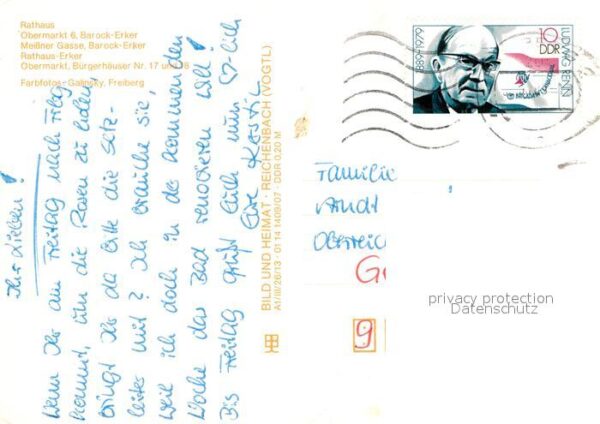 Rathaus
Obermarkt 6, Barock-Erker
Meißner Gasse, Barock-Erker
Rathaus-Erker
Obermarkt, Bürgerhäuser Nr. 17 und 18
Farbfotos: Galinsky, Freiberg
Ihr Lieben!
Wenn Ihr am Freitag nach Fbg
kommt, um die Rosen zu holen,
bringt Ihr da bitte die Setz-
leiter mit? Ich brauche sie,
weil ich doch in der kommenden
Woche das Bad renovieren will!
Bis Freitag grüßt Euch nun
Eure Kersti
BILD UND HEIMAT · REICHENBACH (VOGTL)
A1/III/26/13 · 01 14 1409/07 · DDR 0,20 M
1889-1979
10
DDR
LUDWIG RENN
Familie
Arndt
Oberreic
G
9
privacy protection
Datenschutz